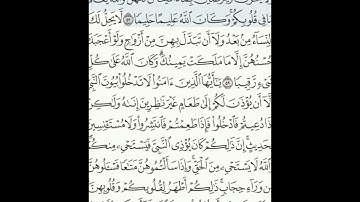 مَا فِى قُلُوبِكُمْ وَكَانَ ٱللَّهُ عَلِيمًا حَلِيمًا ٥١ لَّا يَحِلُّ لَكَ
ٱلنِّسَآءُ مِنۢ بَعْدُ وَلَآ أَن تَبَدَّلَ بِهِنَّ مِنْ أَزْوَٰجٍ وَلَوْ أَعْجَبَكَ
حُسْنُهُنَّ إِلَّا مَا مَلَكَتْ يَمِينُكَ وَكَانَ ٱللَّهُ عَلَىٰ كُلِّ
شَىْءٍ رَّقِيبًا ٥٢ يَٰٓأَيُّهَا ٱلَّذِينَ ءَامَنُوا۟ لَا تَدْخُلُوا۟ بُيُوتَ ٱلنَّبِىِّ
إِلَّآ أَن يُؤْذَنَ لَكُمْ إِلَىٰ طَعَامٍ غَيْرَ نَٰظِرِينَ إِنَىٰهُ وَلَٰكِنْ
إِذَا دُعِيتُمْ فَٱدْخُلُوا۟ فَإِذَا طَعِمْتُمْ فَٱنتَشِرُوا۟ وَلَا مُسْتَـْٔنِسِينَ
لِحَدِيثٍ إِنَّ ذَٰلِكُمْ كَانَ يُؤْذِى ٱلنَّبِىَّ فَيَسْتَحْىِۦ مِنكُمْ
وَٱللَّهُ لَا يَسْتَحْىِۦ مِنَ ٱلْحَقِّ وَإِذَا سَأَلْتُمُوهُنَّ مَتَٰعًا فَسْـَٔلُوهُنَّ
مِن وَرَآءِ حِجَابٍ ذَٰلِكُمْ أَطْهَرُ لِقُلُوبِكُمْ وَقُلُوبِهِنَّ